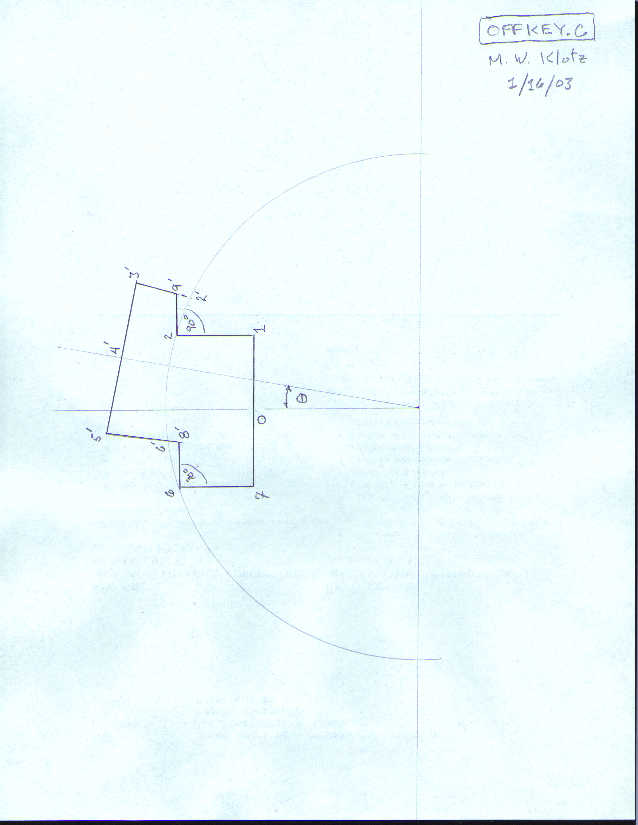 OFFKEY.C
M. W. Klotz
1/16/03
3'
9'
1'
2'
90°
2
1
4'
θ
0
5'
8'
6'
90°
6
7